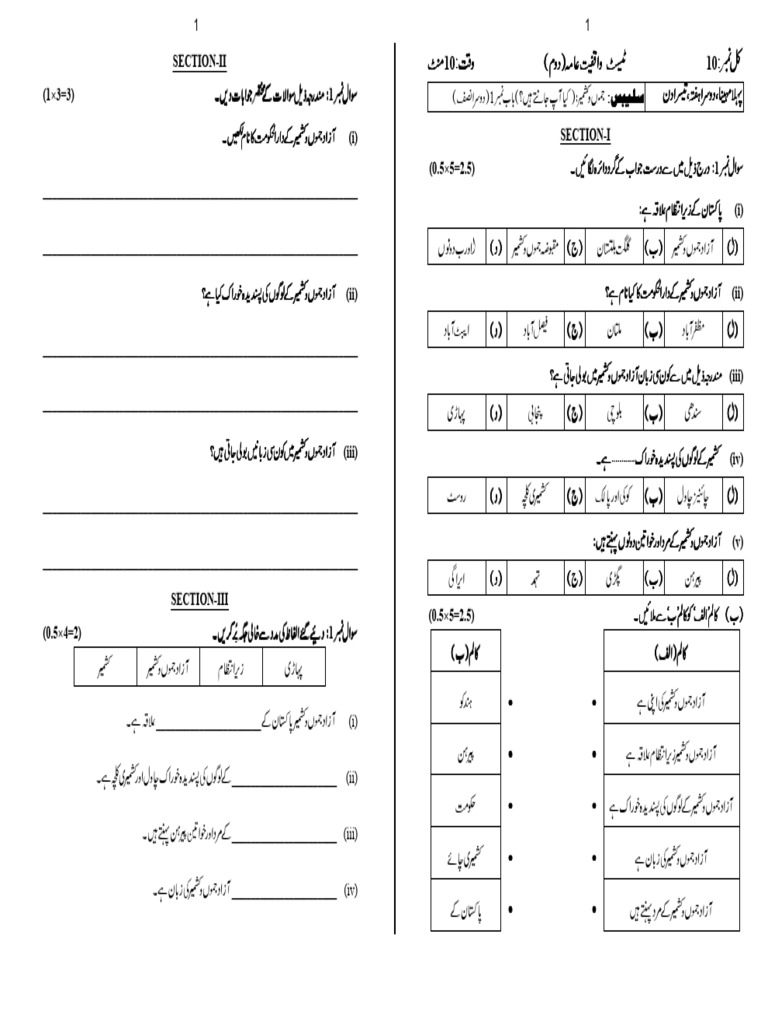 1
کل نمبر: 10 ٹیسٹ واقفیت عامہ (دوم) وقت: 10 منٹ
پہلا مہینا، دوسرا ہفتہ، تیسرا دن سلیبس: جموں و کشمیر: (کیا آپ جانتے ہیں؟) باب نمبر 1 (دوسرا نصف)
SECTION-I
سوال نمبر 1: درج ذیل میں سے درست جواب کے گرد دائرہ لگائیں۔ (0.5×5=2.5)
(i) پاکستان کے زیر انتظام علاقہ ہے:
(ا) آزاد جموں و کشمیر (ب) گلگت بلتستان (ج) مقبوضہ جموں و کشمیر (د) ا اور ب دونوں
(ii) آزاد جموں و کشمیر کے دارالحکومت کا کیا نام ہے؟
(ا) مظفر آباد (ب) ملتان (ج) فیصل آباد (د) ایبٹ آباد
(iii) مندرجہ ذیل میں سے کون سی زبان آزاد جموں و کشمیر میں بولی جاتی ہے؟
(ا) سندھی (ب) بلوچی (ج) پنجابی (د) پہاڑی
(iv) کشمیر کے لوگوں کی پسندیدہ خوراک ----------- ہے۔
(ا) چائنیز چاول (ب) کوکی اور پالک (ج) کشمیری کلچہ (د) روسٹ
(v) آزاد جموں و کشمیر کے مرد اور خواتین دونوں پہنتے ہیں:
(ا) پیرہن (ب) پگڑی (ج) تہمد (د) ایرانگی
(ب) کالم ’الف‘ کو کالم ’ب‘ سے ملائیں۔ (0.5×5=2.5)
کالم (الف) کالم (ب)
آزاد جموں و کشمیر کی اپنی ہے • • ہندکو
آزاد جموں و کشمیر زیر انتظام علاقہ ہے • • پیرہن
آزاد جموں و کشمیر کے لوگوں کی پسندیدہ خوراک ہے • • حکومت
آزاد جموں و کشمیر کی زبان ہے • • کشمیری چائے
آزاد جموں و کشمیر کے مرد پہنتے ہیں • • پاکستان کے
1
SECTION-II
سوال نمبر 1: مندرجہ ذیل سوالات کے مختصر جوابات دیں۔ (1×3=3)
(i) آزاد جموں و کشمیر کے دارالحکومت کا نام لکھیں۔
(ii) آزاد جموں و کشمیر کے لوگوں کی پسندیدہ خوراک کیا ہے؟
(iii) آزاد جموں و کشمیر میں کون سی زبانیں بولی جاتی ہیں؟
SECTION-III
سوال نمبر 1: دیئے گئے الفاظ کی مدد سے خالی جگہ پُر کریں۔ (0.5×4=2)
پہاڑی زیر انتظام آزاد جموں و کشمیر کشمیر
(i) آزاد جموں و کشمیر پاکستان کے ________________ علاقہ ہے۔
(ii) ________________ کے لوگوں کی پسندیدہ خوراک چاول اور کشمیری کلچہ ہے۔
(iii) ________________ کے مرد اور خواتین پیرہن پہنتے ہیں۔
(iv) ________________ آزاد جموں و کشمیر کی زبان ہے۔